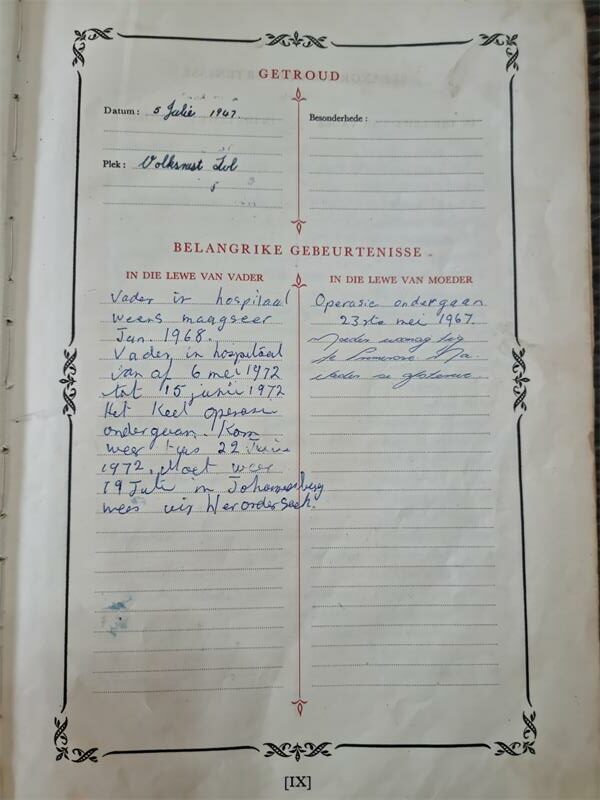 GETROUD
Datum: 5 Julie 1947.
Besonderhede:
Plek: Volksrust Tvl
BELANGRIKE GEBEURTENISSE
IN DIE LEWE VAN VADER
Vader in hospitaal
weens maagseer
Jan. 1968.
Vader in hospitaal
van af 6 mei 1972
tot 15 junie 1972
Het Keel operasie
ondergaan. Kom
weer tuis 22 Junie
1972. Moet weer
19 Julie in Johannesburg
wees vir her ondersoek.
IN DIE LEWE VAN MOEDER
Operasie ondergaan
23ste mei 1967.
Moeder woonag by
Primrose Na
vader se
[IX]